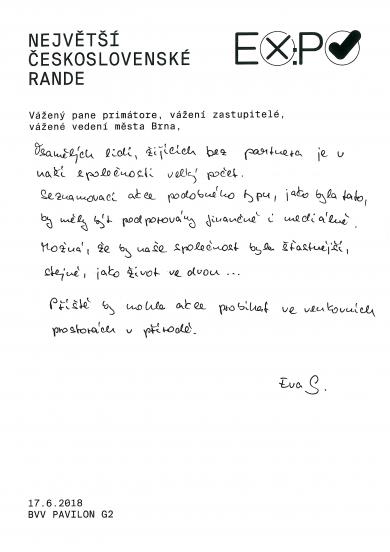 NEJVĚTŠÍ
ČESKOSLOVENSKÉ
RANDE
EXPO
Vážený pane primátore, vážení zastupitelé,
vážené vedení města Brna,
Osamělých lidí, žijících bez partnera je v
naší společnosti velký počet.
Seznamovací akce podobného typu, jako byla tato,
by měly být podporovány finančně i mediálně.
Možná, že by naše společnost byla šťastnější,
stejně, jako život ve dvou ...
Příště by mohla akce probíhat ve venkovních
prostorách v přírodě.
Eva S.
17.6.2018
BVV PAVILON G2